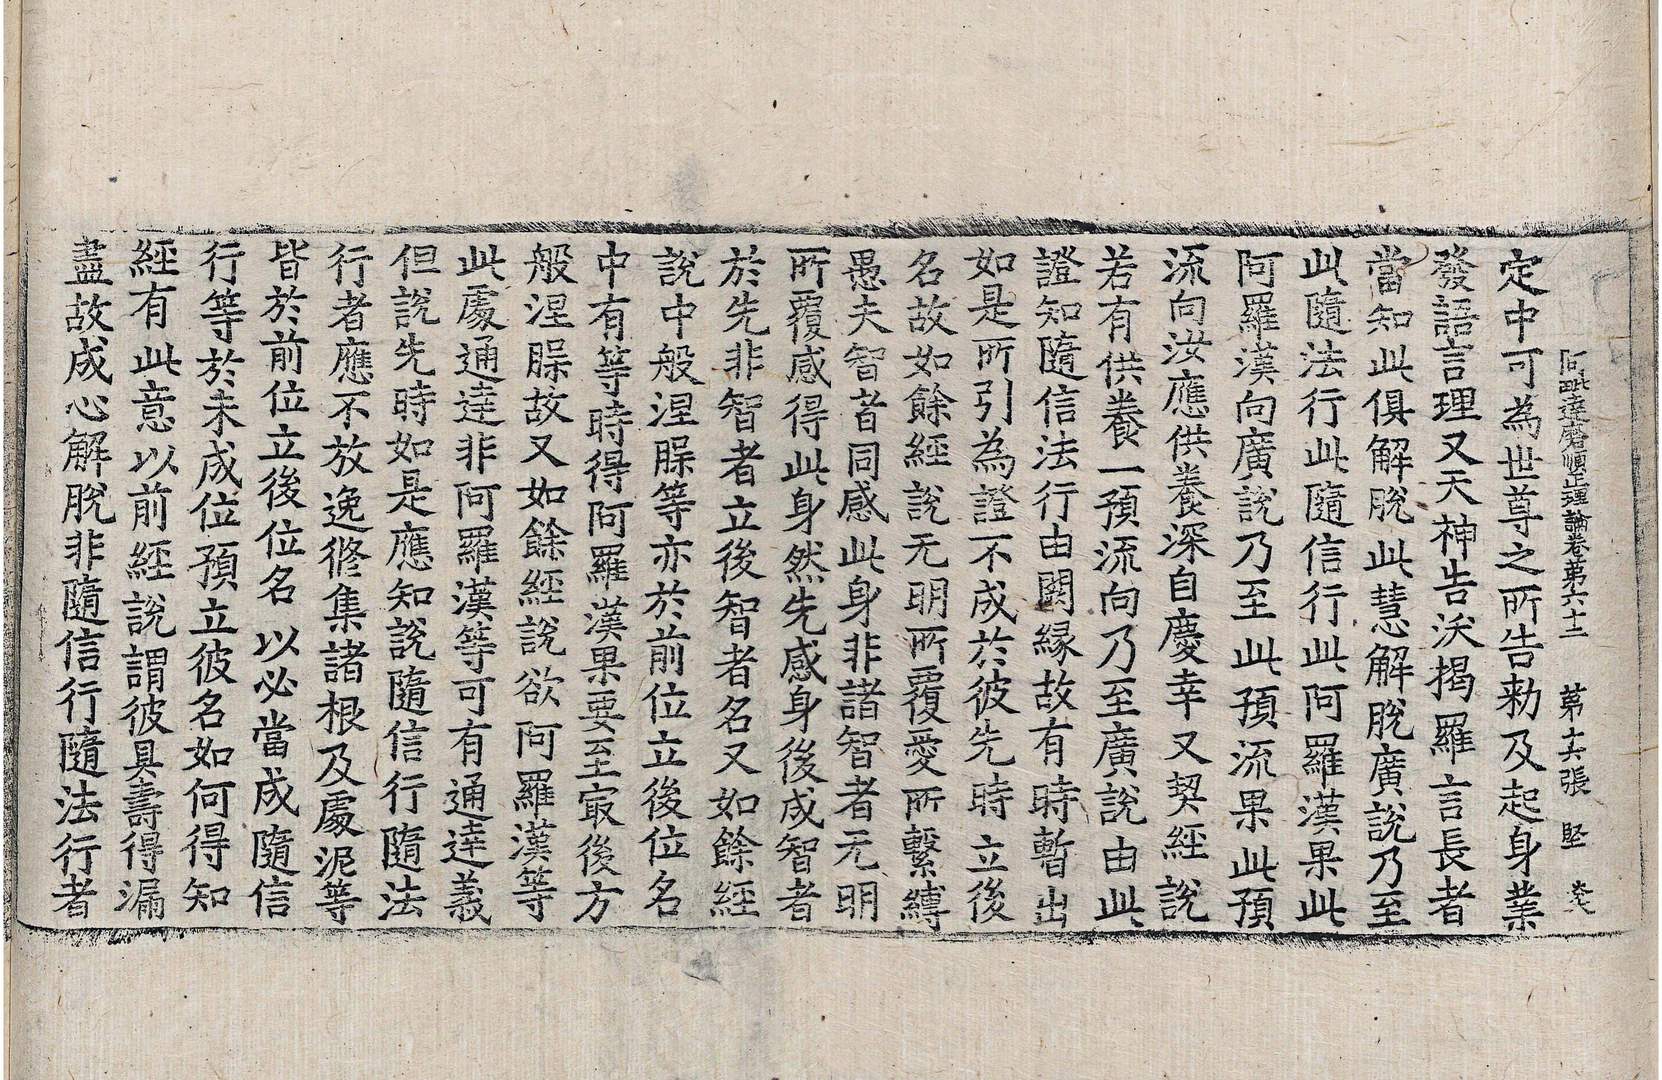 阿毗達磨順正理論卷第六十二 第十六張 堅
定中可為世尊之所告勑及起身業
發語言理又天神告沃揭羅言長者
當知此俱解脫此慧解脫廣說乃至
此隨法行此隨信行此阿羅漢果此
阿羅漢向廣說乃至此預流果此預
流向汝應供養深自慶幸又契經說
若有供養一預流向乃至廣說由此
證知隨信法行由闕緣故有時暫出
如是所引為證不成於彼先時立後
名故如餘經說无明所覆愛所繫縛
愚夫智者同感此身非諸智者无明
所覆感得此身然先感身後成智者
於先非智者立後智者名又如餘經
說中般涅槃等亦於前位立後位名
中有等時得阿羅漢果要至寂後方
般涅槃故又如餘經說欲阿羅漢等
此處通達非阿羅漢等可有通達義
但說先時如是應知說隨信行隨法
行者應不放逸修集諸根及處泥等
皆於前位立後位名以必當成隨信
行等於未成位預立彼名如何得知
經有此意以前經說謂彼具壽得漏
盡故成心解脫非隨信行隨法行者